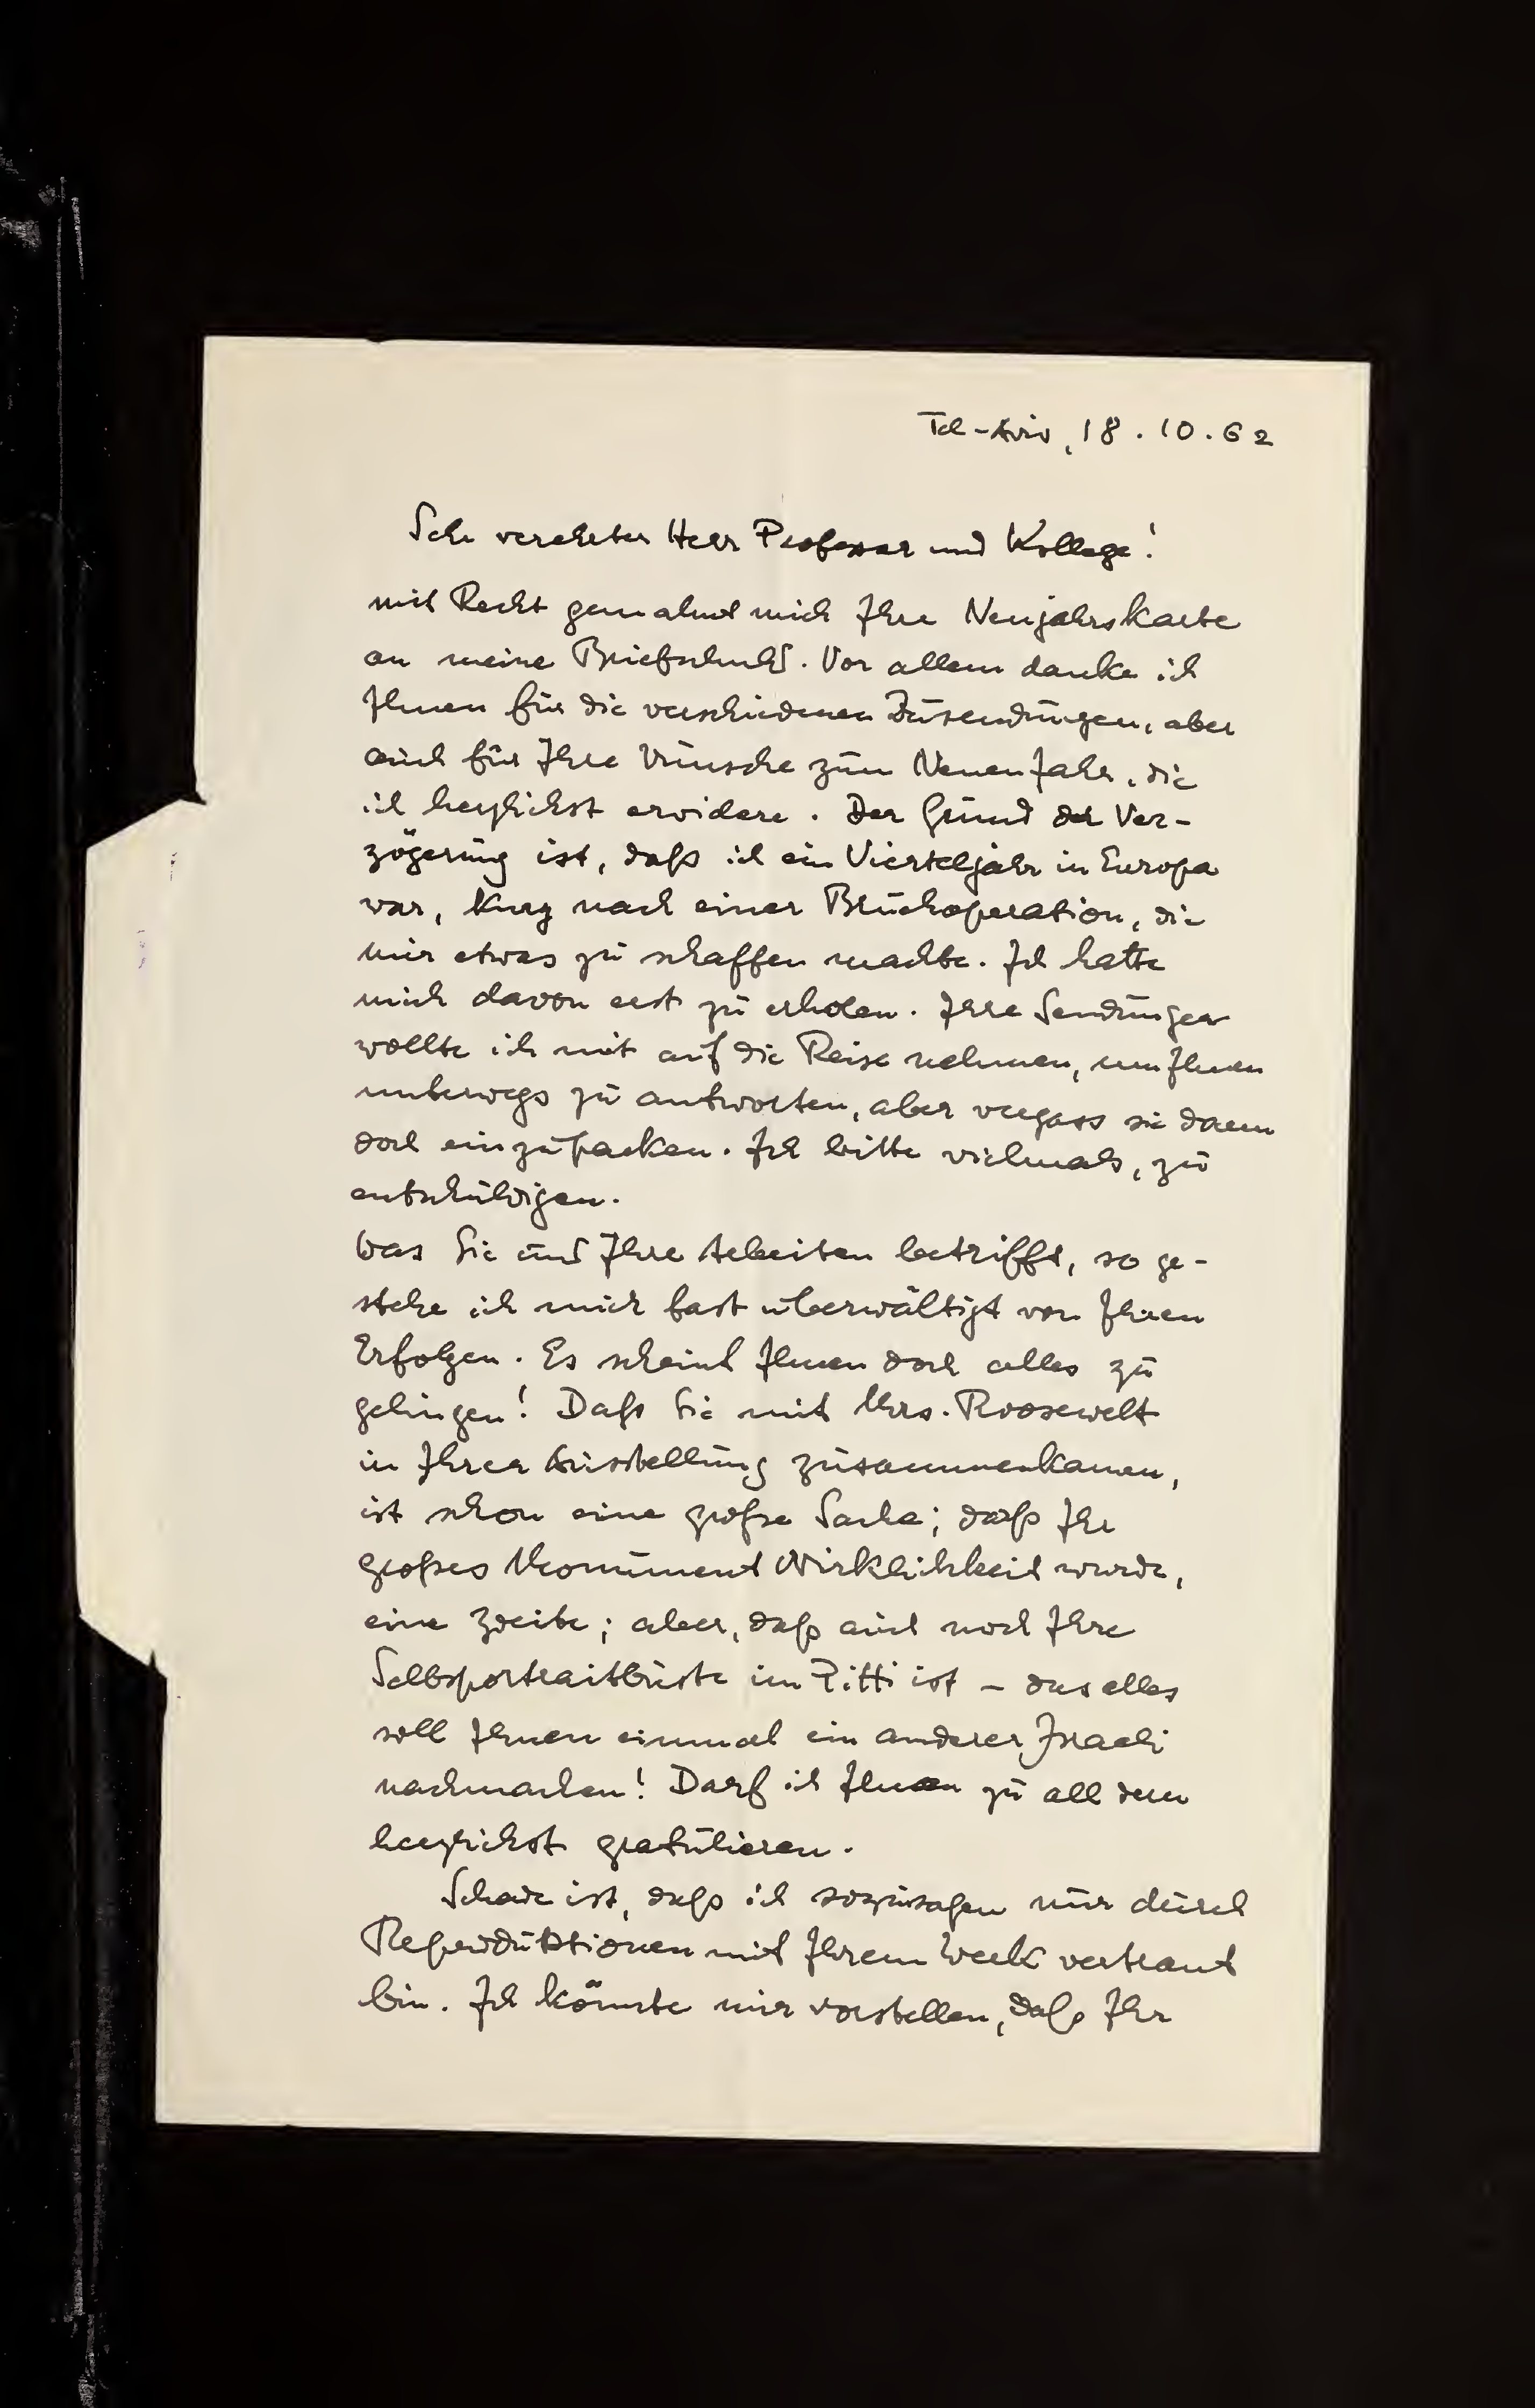 Tel-Aviv, 18.10.62
Sehr verehrter Herr Professor und Kollege!
mit Recht gemahnt mich Ihre Neujahrskarte
an meine Briefschuld. Vor allem danke ich
Ihnen für die verschiedenen Zusendungen, aber
auch für Ihre Wünsche zum Neuen Jahr, die
ich herzlichst erwidere. Der Grund der Ver-
zögerung ist, daß ich ein Vierteljahr in Europa
war, kurz nach einer Bruchoperation, die
mir etwas zu schaffen machte. Ich hatte
mich davon erst zu erholen. Ihre Sendungen
wollte ich mit auf die Reise nehmen, um Ihnen
unterwegs zu antworten, aber vergass sie dann
doch einzupacken. Ich bitte vielmals, zu
entschuldigen.
Was Sie und Ihre Arbeiten betrifft, so ge-
stehe ich mich fast überwältigt von Ihren
Erfolgen. Es scheint Ihnen doch alles zu
gelingen! Daß Sie mit Mrs. Roosewelt
in Ihrer Ausstellung zusammenkamen,
ist schon eine große Sache; daß Ihr
großes Monument Wirklichkeit wurde,
eine zweite; aber, daß auch noch Ihre
Selbsportraitbüste im Pitti ist – das alles
soll Ihnen einmal ein anderer Israeli
nachmachen! Darf ich Ihnen zu all dem
herzlichst gratulieren.
Schade ist, daß ich sozusagen nur durch
Reproduktionen mit Ihrem Werk vertraut
bin. Ich könnte mir vorstellen, daß Ihr